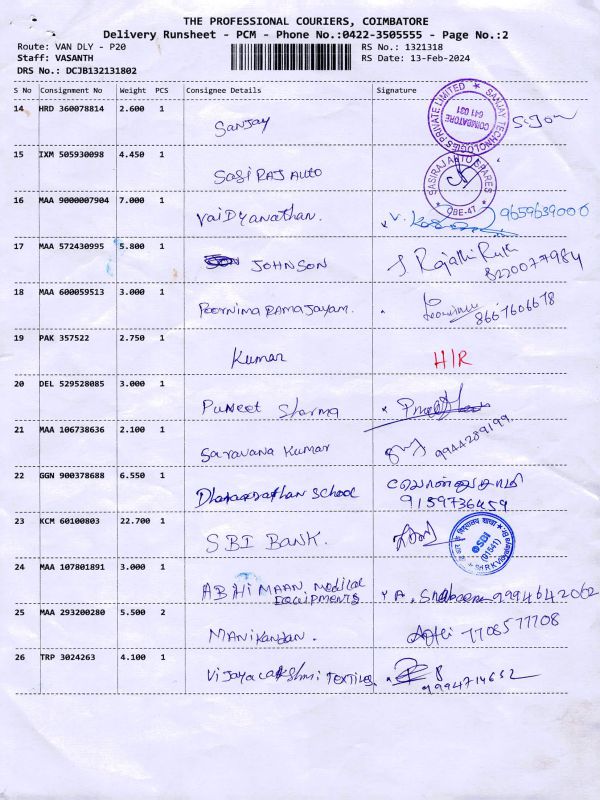 THE PROFESSIONAL COURIERS, COIMBATORE
Delivery Runsheet - PCM - Phone No.:0422-3505555 - Page No.:2
Route: VAN DLY - P20 RS No.: 1321318
Staff: VASANTH RS Date: 13-Feb-2024
DRS No.: DCJB132131802
S No Consignment No Weight PCS Consignee Details Signature
14 HRD 360078814 2.600 1 Sanjay
SANJAY TECHNOLOGIES PRIVATE LIMITED
COIMBATORE
641 031
15 IXM 505930098 4.450 1 SASI RAJ AUTO
SASIRAJ AUTO SPARES
CBE-47
16 MAA 9000007904 7.000 1 VaiDyanathan. V. 9659639000
17 MAA 572430995 5.800 1 JOHNSON J Rajathi
8220077984
18 MAA 600059513 3.000 1 Poornima RAMAJayam.
8667606678
19 PAK 357522 2.750 1 Kumar H/R
20 DEL 529528085 3.000 1 Puneet Sharma
21 MAA 106738636 2.100 1 Saravana Kumar 9944289199
22 GGN 900378688 6.550 1 School
9159736459
23 KCM 60100803 22.700 1 SBI BANK.
24 MAA 107801891 3.000 1 ABHIMAAN Medical
EQUIPMENTS A. 9994642062
25 MAA 293200280 5.500 2 Manikandan. 7708577708
26 TRP 3024263 4.100 1 Vijayalakshmi Textiles
9994714652